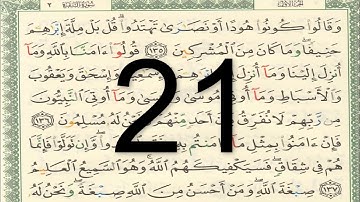 الجزء الأول سورة البقرة ٢
وَقَالُوا۟ كُونُوا۟ هُودًا أَوْ نَصَٰرَىٰ تَهْتَدُوا۟ قُلْ بَلْ مِلَّةَ إِبْرَٰهِـۧمَ
حَنِيفًا وَمَا كَانَ مِنَ ٱلْمُشْرِكِينَ ١٣٥ قُولُوٓا۟ ءَامَنَّا بِٱللَّهِ وَمَآ
أُنزِلَ إِلَيْنَا وَمَآ أُنزِلَ إِلَىٰٓ وَإِسْحَٰقَ وَيَعْقُوبَ
وَٱلْأَسْبَاطِ وَمَآ أُوتِىَ مُوسَىٰ وَمَآ أُوتِىَ ٱلنَّبِيُّونَ
مِن رَّبِّهِمْ لَا نُفَرِّقُ بَيْنَ أَحَدٍ مِّنْهُمْ مُسْلِمُونَ ١٣٦
فَإِنْ ءَامَنُوا۟ بِمِثْلِ مَآ ءَامَنتُم وَّإِن تَوَلَّوْا۟ فَإِنَّمَا
هُمْ فِى شِقَاقٍ فَسَيَكْفِيكَهُمُ ٱللَّهُ وَهُوَ ٱلسَّمِيعُ ٱلْعَلِيمُ
١٣٧ صِبْغَةَ ٱللَّهِ وَمَنْ أَحْسَنُ مِنَ ٱللَّهِ صِبْغَةً وَنَحْنُ لَهُۥ
21